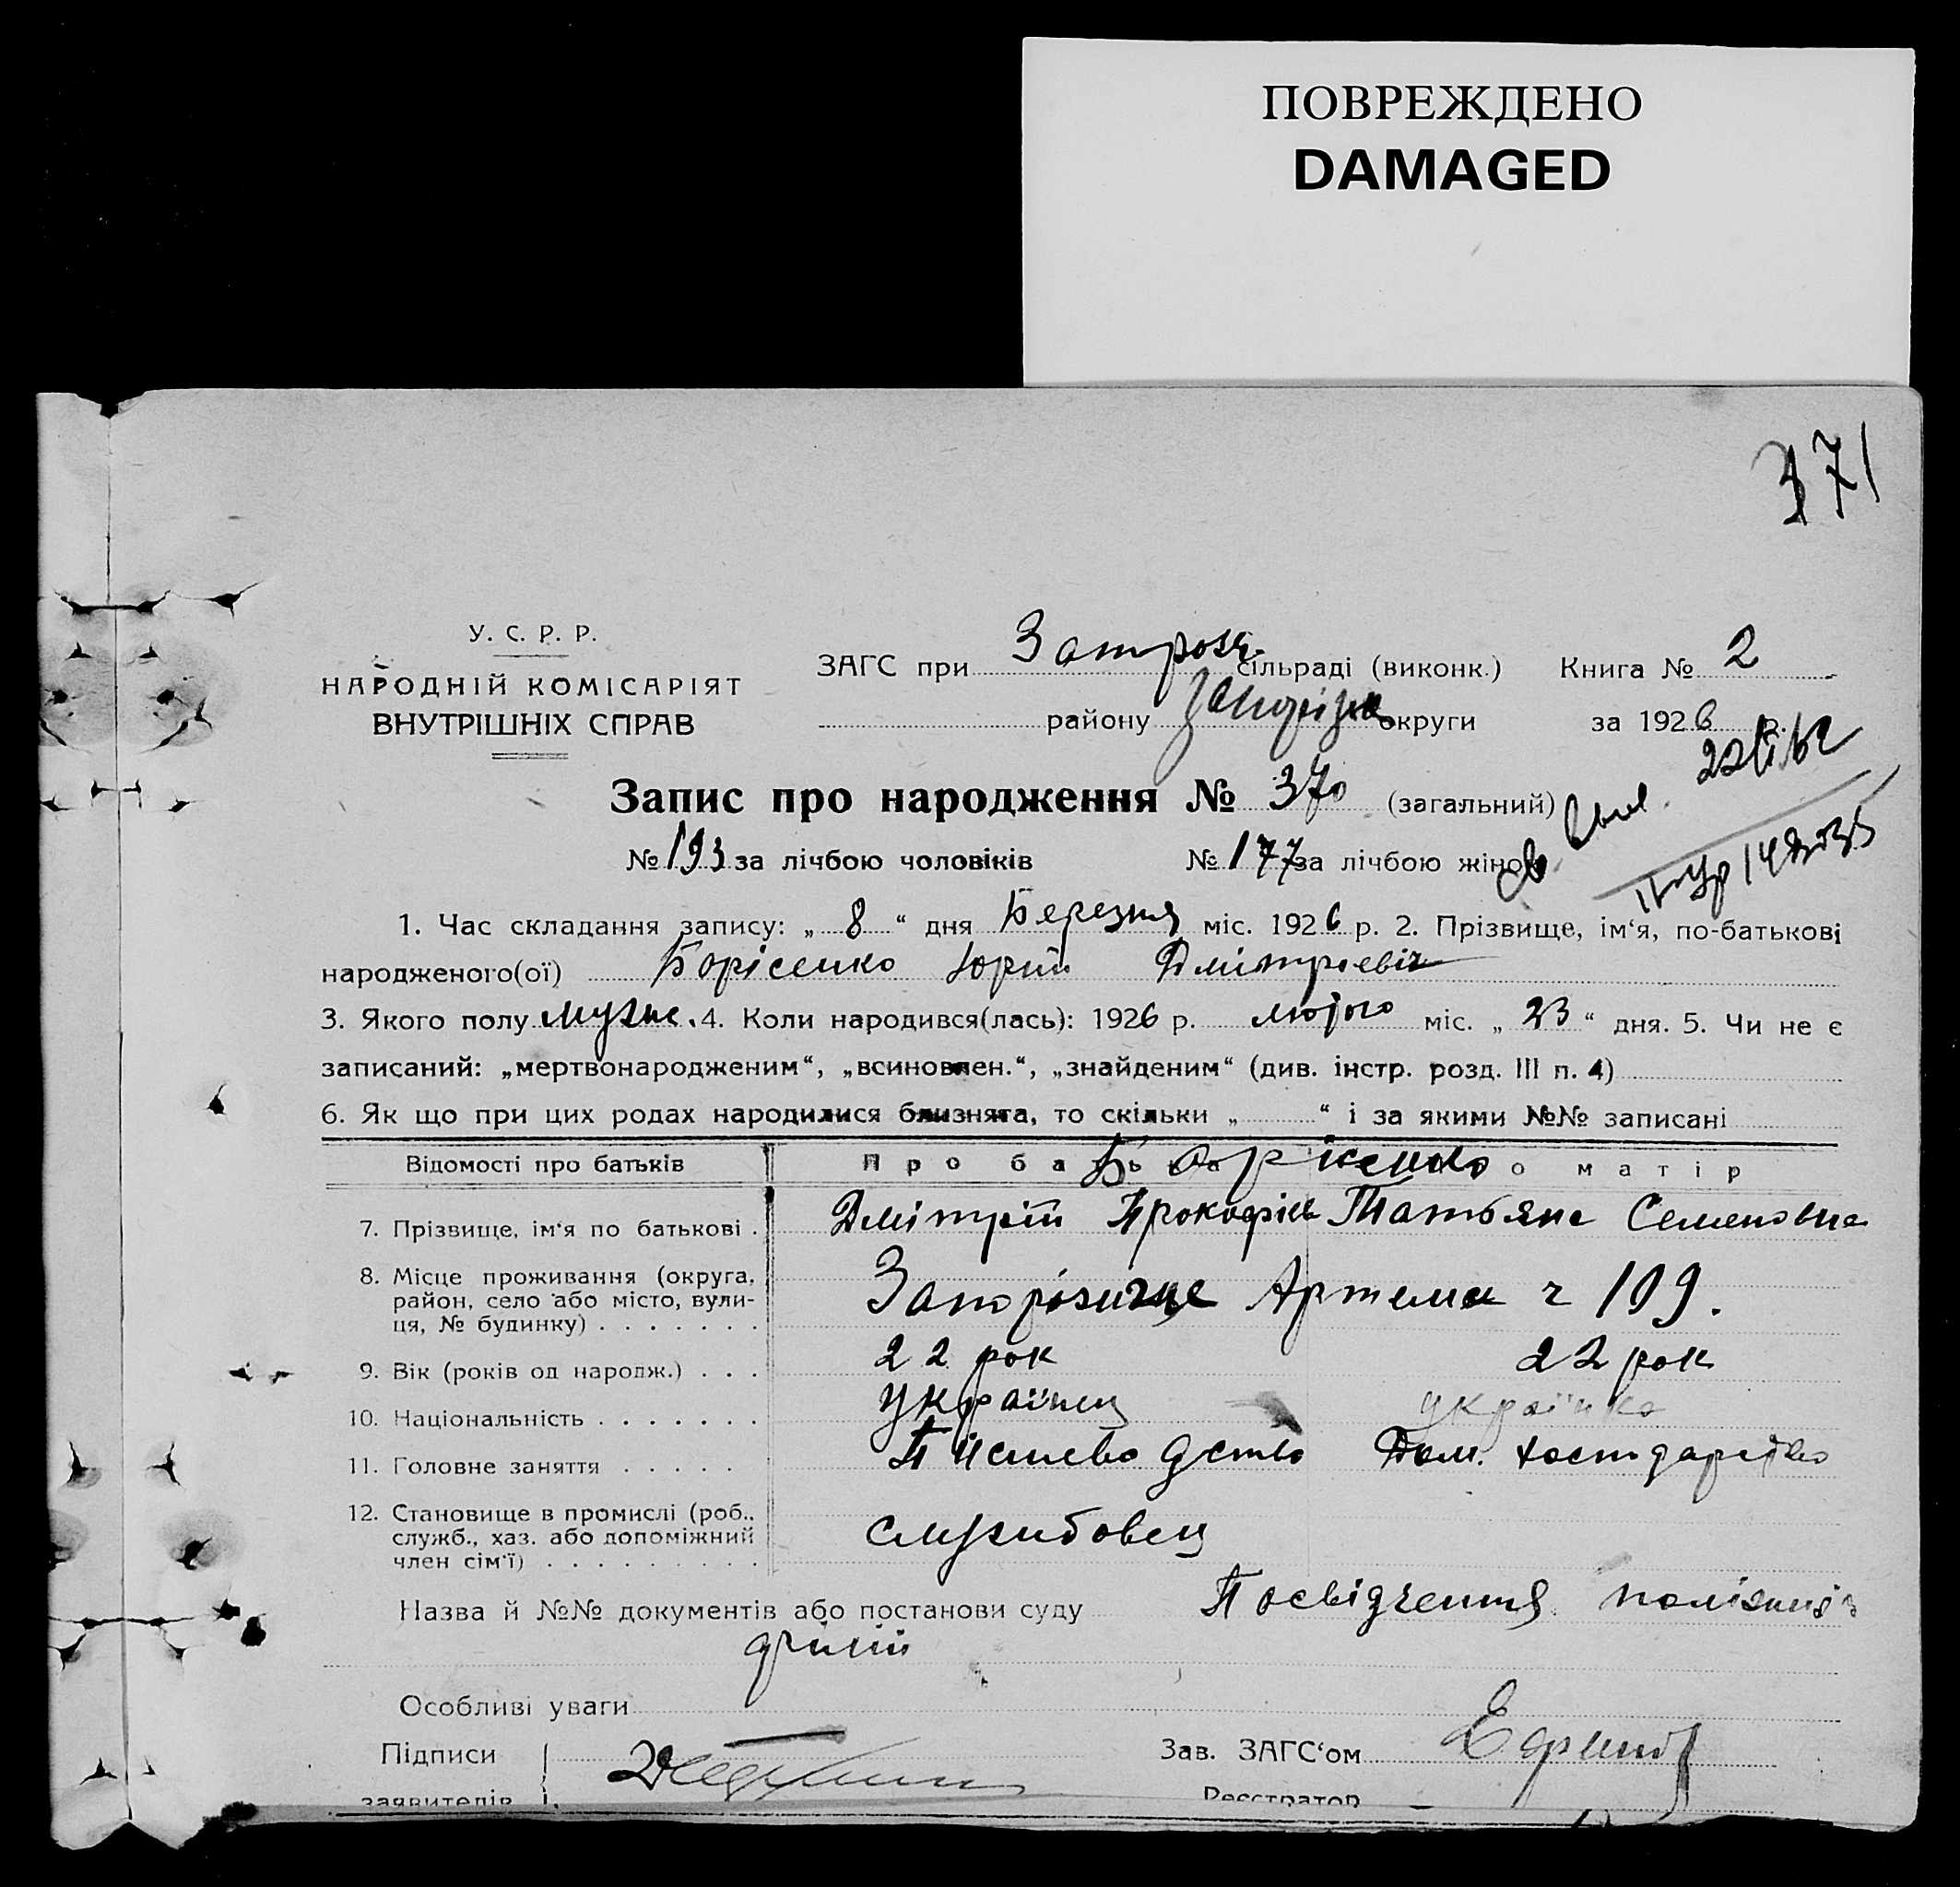 ПОВРЕЖДЕНО
DAMAGED
371
У. С. Р. Р.
НАРОДНІЙ КОМІСАРІЯТ
ВНУТРІШНІХ СПРАВ
ЗАГС при сільраді (виконк.) Книга № 2
району округи за 1926 р.
Запис про народження № 370 (загальний)
№ 193 за лічбою чоловіків № 177 за лічбою жінок
1. Час складання запису: „ 8 “ дня Березня міс. 1926 р. 2. Прізвище, ім‘я, по-батькові
народженого(ої) Борісенко Юрій Дмітрієвіч
3. Якого полу мужс. 4. Коли народився(лась): 1926 р. лютого міс. „ 23 “ дня. 5. Чи не є
записаний: „мертвонародженим“, „всиновлен.“, „знайденим“ (див. інстр. розд. III п. 4)
6. Як що при цих родах народилися близнята, то скільки „ “ і за якими №№ записані
Відомості про батьків Про батька Борісенко Про матір
7. Прізвище, ім‘я по батькові . Дмітрій Татьяна Семеновна
8. Місце проживання (округа,
район, село або місто, вули-
ця, № будинку) . . . . . . . Артема ч 109.
9. Вік (років од народж.) . . . 22 рок 22 рок
10. Національність . . . . . . . українец українка
11. Головне заняття . . . . . Дом.
12. Становище в промислі (роб.,
служб., хаз. або допоміжний
член сім‘ї) . . . . . . . . . службовец
Назва й №№ документів або постанови суду Посвідчення
Особливі уваги
Підписи
заявителів
Зав. ЗАГС‘ом
Реєстратор